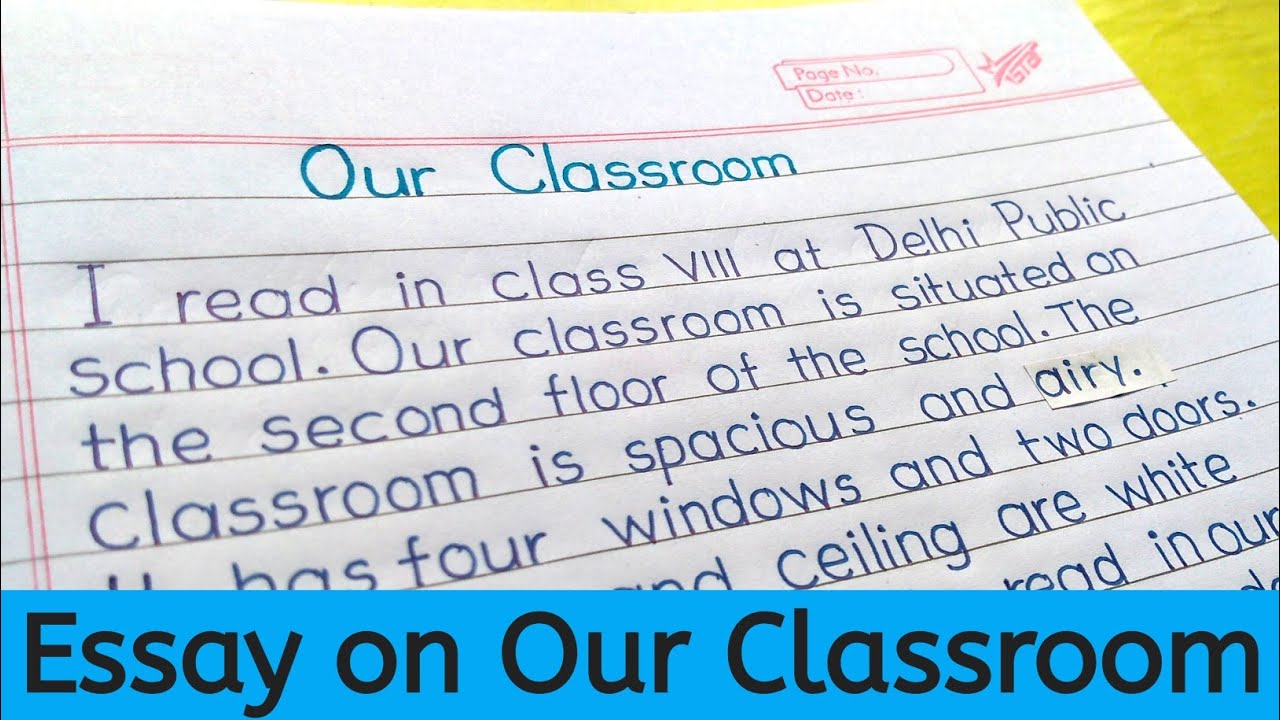 Page No.
Date:
Our Classroom
I read in class VIII at Delhi Public
school. Our classroom is situated on
the second floor of the school. The
classroom is spacious and airy.
has four windows and two doors.
and ceiling are white
read in our
Essay on Our Classroom